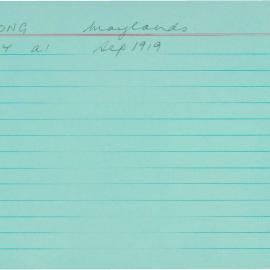 ONG Maylands
4 a1 Sep 1919